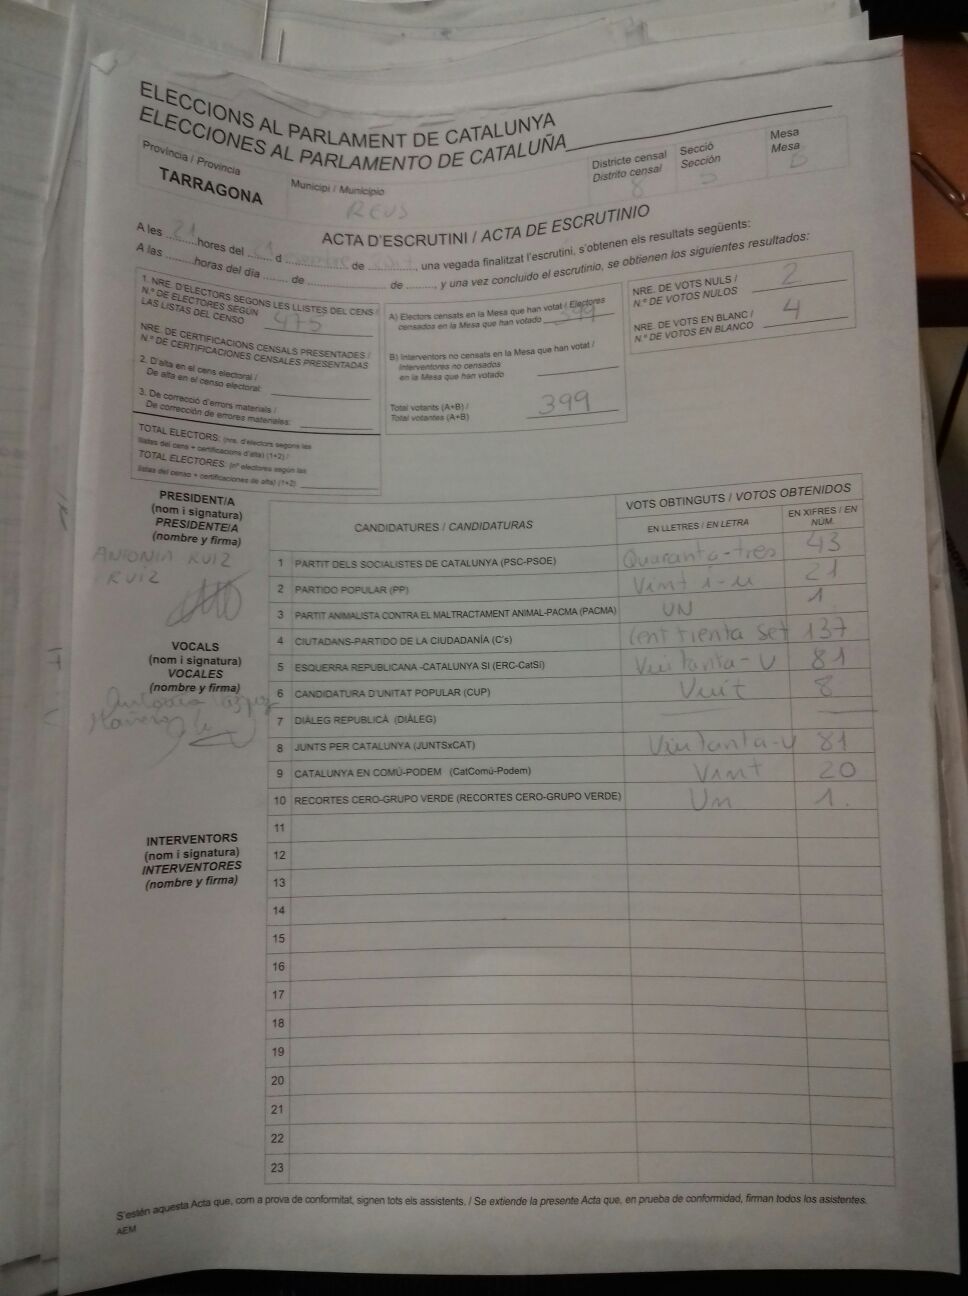 ELECCIONS AL PARLAMENT DE CATALUNYA
ELECCIONES AL PARLAMENTO DE CATALUÑA
Província / Provincia
TARRAGONA
Municipi / Municipio
REUS
Districte censal
Distrito censal
8
Secció
Sección
5
Mesa
Mesa
B
ACTA D'ESCRUTINI / ACTA DE ESCRUTINIO
A les 21 hores del 21 d de , una vegada finalitzat l'escrutini, s'obtenen els resultats següents:
A las .........horas del día ....... de ...................... de ........, y una vez concluido el escrutinio, se obtienen los siguientes resultados:
1. NRE. D'ELECTORS SEGONS LES LLISTES DEL CENS /
N.º DE ELECTORES SEGÚN
LAS LISTAS DEL CENSO 475
NRE. DE CERTIFICACIONS CENSALS PRESENTADES /
N.º DE CERTIFICACIONES CENSALES PRESENTADAS
2. D'alta en el cens electoral /
De alta en el censo electoral:
3. De correcció d'errors materials /
De corrección de errores materiales:
TOTAL ELECTORS: (nre. d'electors segons les
llistes del cens + certificacions d'alta) (1+2) /
TOTAL ELECTORES: (nº electores según las
listas del censo + certificaciones de alta) (1+2)
A) Electors censats en la Mesa que han votat / Electores
censados en la Mesa que han votado 399
B) Interventors no censats en la Mesa que han votat /
Interventores no censados
en la Mesa que han votado
Total votants (A+B) /
Total votantes (A+B) 399
NRE. DE VOTS NULS /
N.º DE VOTOS NULOS 2
NRE. DE VOTS EN BLANC /
N.º DE VOTOS EN BLANCO 4
PRESIDENT/A
(nom i signatura)
PRESIDENTE/A
(nombre y firma)
ANTONIA RUIZ
RUIZ
VOCALS
(nom i signatura)
VOCALES
(nombre y firma)
INTERVENTORS
(nom i signatura)
INTERVENTORES
(nombre y firma)
CANDIDATURES / CANDIDATURAS
VOTS OBTINGUTS / VOTOS OBTENIDOS
EN LLETRES / EN LETRA
EN XIFRES / EN
NÚM.
1 PARTIT DELS SOCIALISTES DE CATALUNYA (PSC-PSOE) Quaranta-tres 43
2 PARTIDO POPULAR (PP) Vint-i-u 21
3 PARTIT ANIMALISTA CONTRA EL MALTRACTAMENT ANIMAL-PACMA (PACMA) UN 1
4 CIUTADANS-PARTIDO DE LA CIUDADANÍA (C's) Cent trenta set 137
5 ESQUERRA REPUBLICANA -CATALUNYA SI (ERC-CatSí) Vuitanta-u 81
6 CANDIDATURA D'UNITAT POPULAR (CUP) Vuit 8
7 DIÀLEG REPUBLICÀ (DIÀLEG)
8 JUNTS PER CATALUNYA (JUNTSxCAT) Vuitanta-u 81
9 CATALUNYA EN COMÚ-PODEM (CatComú-Podem) Vint 20
10 RECORTES CERO-GRUPO VERDE (RECORTES CERO-GRUPO VERDE) Un 1.
11
12
13
14
15
16
17
18
19
20
21
22
23
S'estén aquesta Acta que, com a prova de conformitat, signen tots els assistents. / Se extiende la presente Acta que, en prueba de conformidad, firman todos los asistentes.
AEM